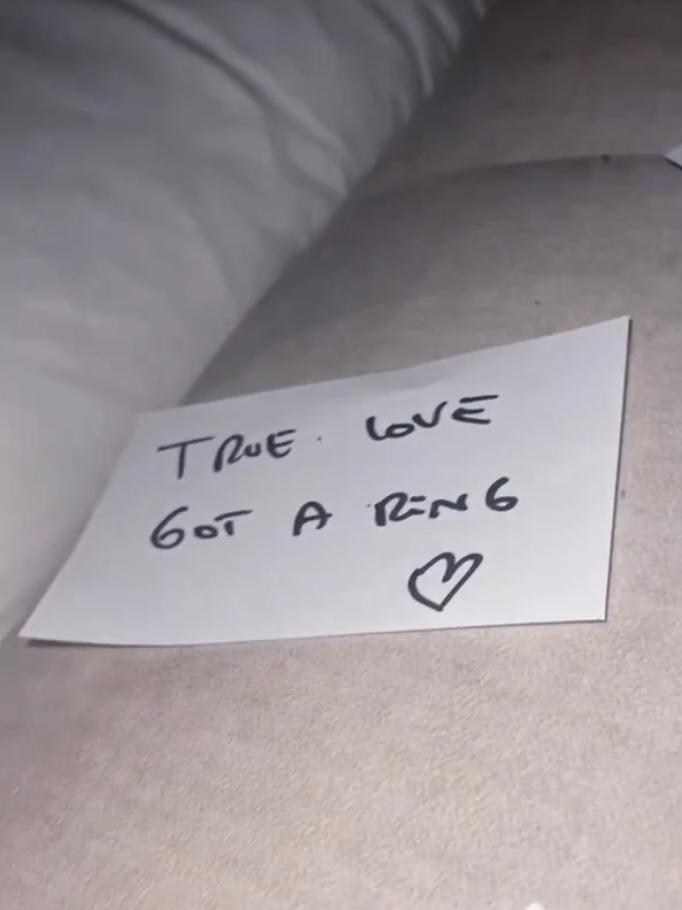 TRUE. LOVE
GOT A RING